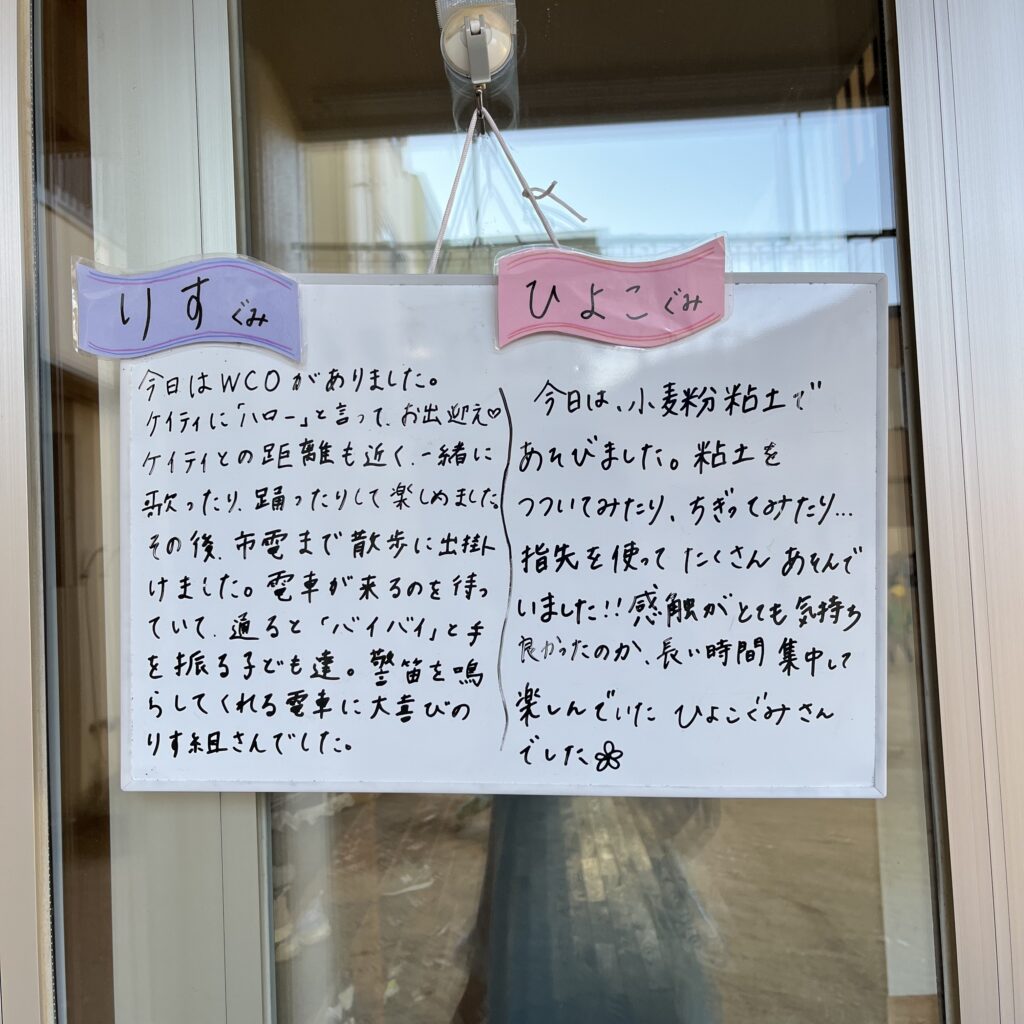 りすぐみ
今日はWCOがありました。
ケイティに「ハロー」と言って、お出迎え♡
ケイティとの距離も近く、一緒に
歌ったり、踊ったりして楽しめました。
その後、市電まで散歩に出掛
けました。電車が来るのを待っ
ていて、通ると「バイバイ」と手
を振る子ども達。警笛を鳴
らしてくれる電車に大喜びの
りす組さんでした。
ひよこぐみ
今日は、小麦粉粘土で
あそびました。粘土を
つついてみたり、ちぎってみたり…
指先を使って たくさん あそんで
いました!!感触がとても気持ち
良かったのか、長い時間 集中して
楽しんでいた ひよこぐみさん
でした